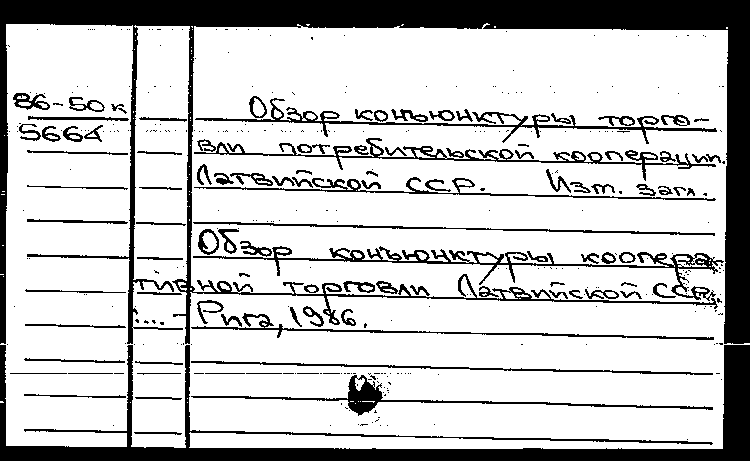 86-50к
5664
Обзор конъюнктуры торго-
вли потребительской кооперации
Латвийской ССР. Изм. загл.
Обзор конъюнктуры коопера-
тивной торговли Латвийской ССР
:... - Рига, 1986.